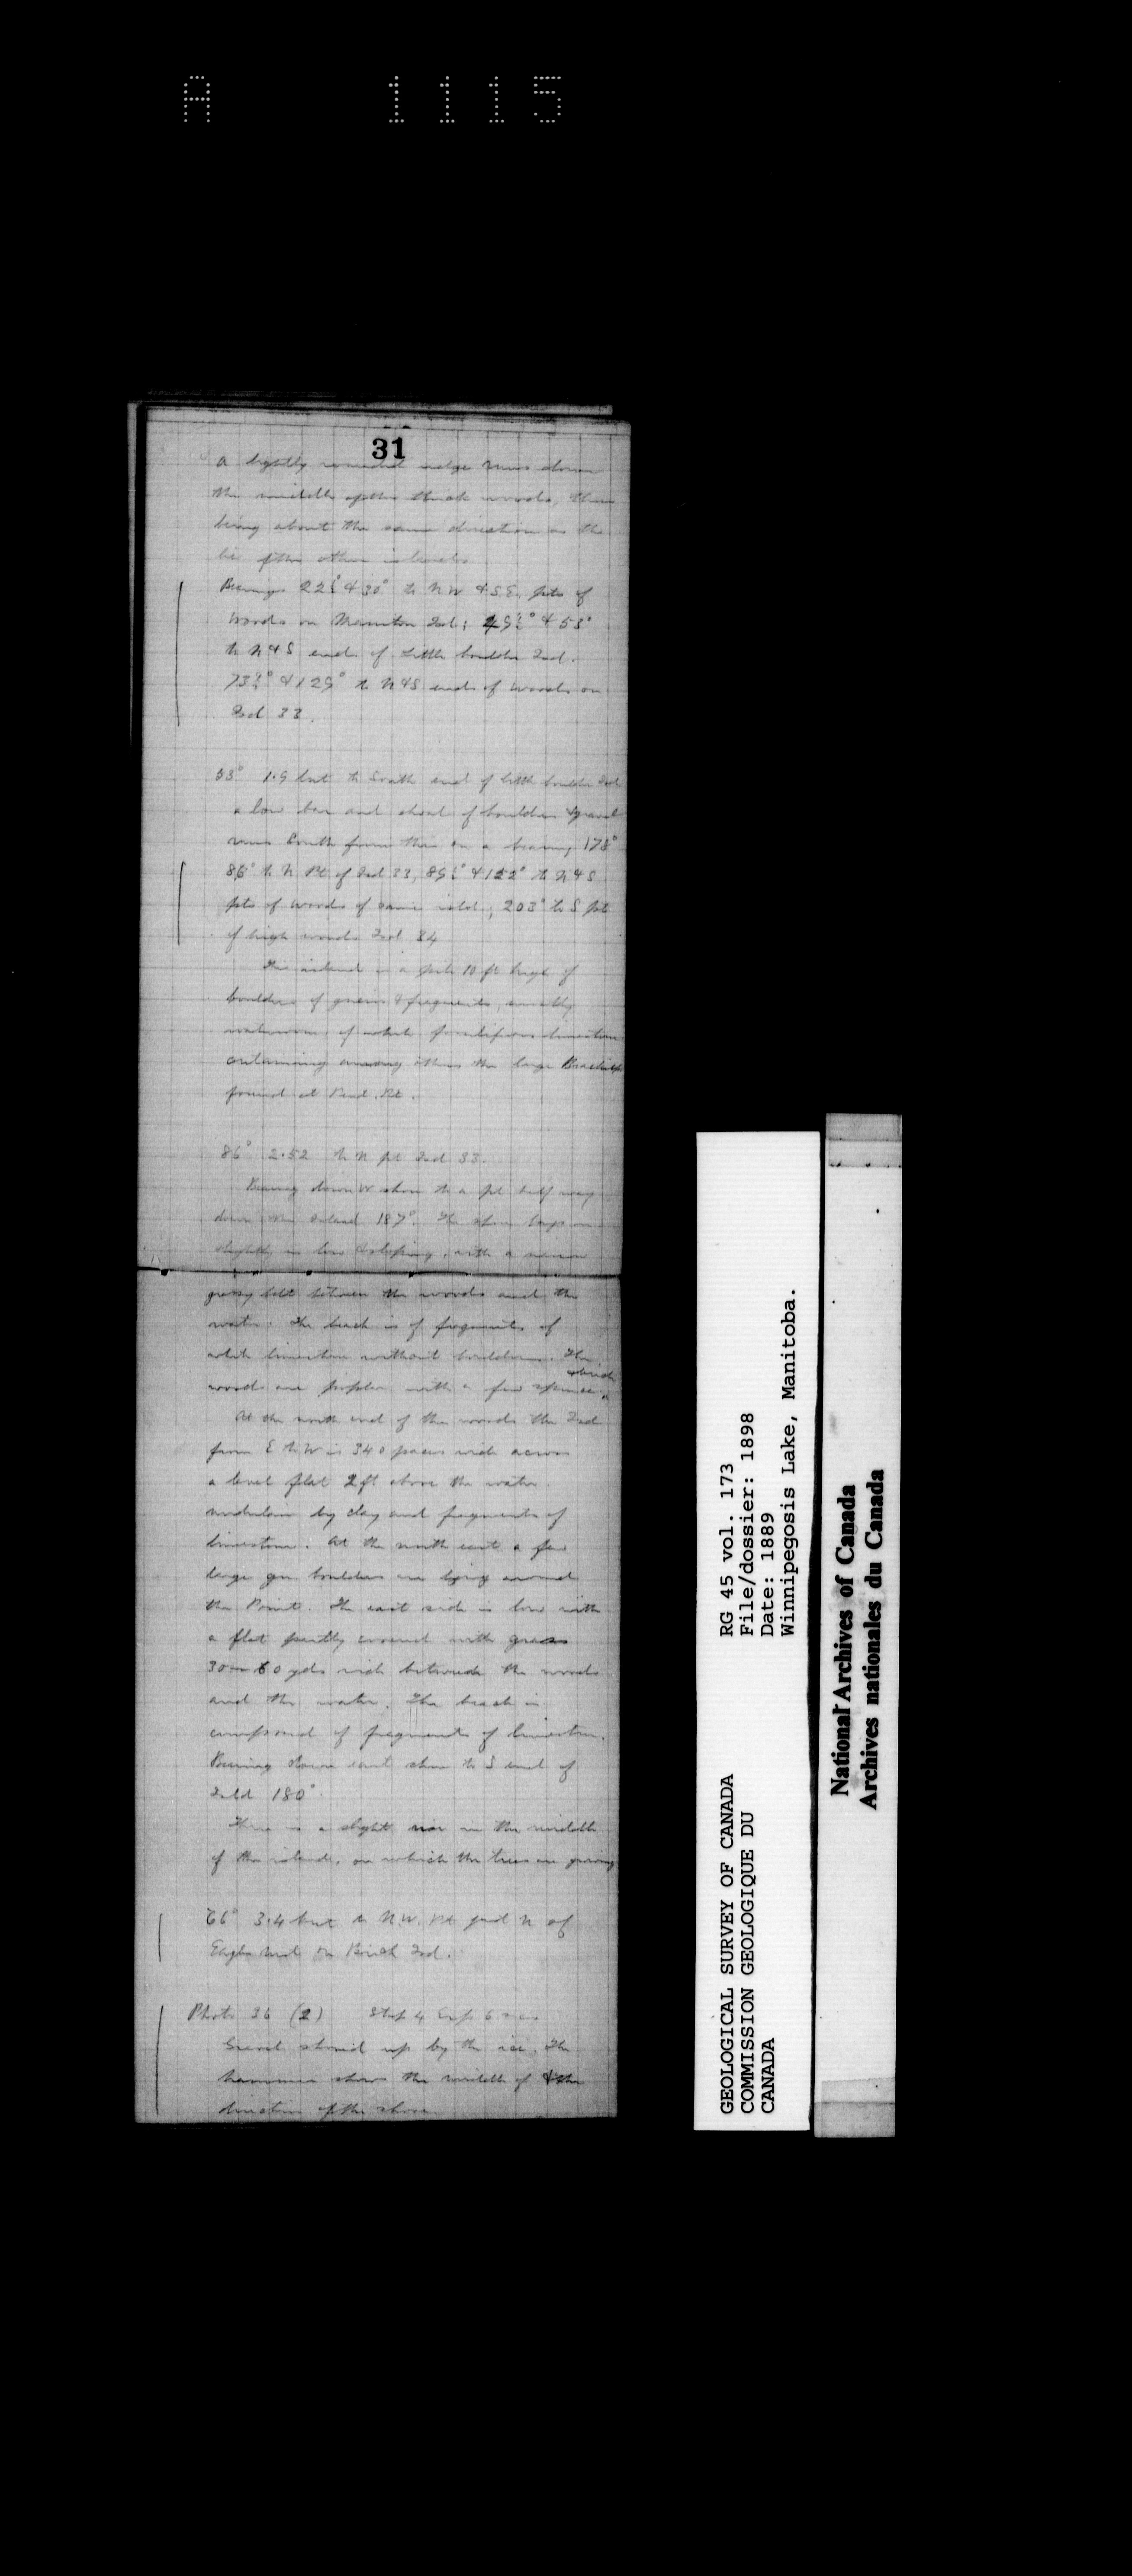 A 1115
31
a lightly rounded ridge runs down
the middle of the thick woods, then
being about the same direction as the
lie of the other islands
Bearings 22½° & 30° to N W & S.E. pts of
woods on Manitou Isd; 49½° & 53°
to N & S ends of little boulder Isd.
73½° & 129° to N & S ends of woods on
Isd 33.
53° 1.9 but to South end of little boulder Isd
a low bar and shoal of boulders & gravel
runs South from this on a bearing 178°
86° to N Pt of Isd 33, 89½° & 122° to N & S
pts of woods of same isld; 203° to S pt
of high woods Isd 34
The island is a pile 10 ft high of
boulders of gneiss & fragments, mostly
waterworn, of white fossiliferous limestone
containing among others the large
found at Pt.
86° 2.52 to N pt Isd 33.
Bearing down W shore to a pt half way
down the Island 187°. The shore
slightly, is low & sloping, with a narrow
grassy belt between the woods and the
water. The beach is of fragments of
white limestone without boulders. The
woods are poplar with a few spruce
At the north end of the woods the Isd
from E to W is 340 paces wide across
a level flat 2 ft above the water
underlain by clay and fragments of
limestone. At the north east a few
large gn. boulders are lying around
the Point. The east side is low with
a flat partly covered with grass
30 or 60 yds wide between the woods
and the water. The beach is
composed of fragments of limestone.
Bearing down east shore to S end of
Isld 180°.
There is a slight rise in the middle
of the island, on which the trees are growing
66° 3.4 but to N.W. Pt just N of
Eagles nest on Birch Isd.
Photo 36 (2) Stop 4 Exp 6 secs
Gravel shoved up by the ice. The
hammer shows the middle of & the
direction of the shove.
GEOLOGICAL SURVEY OF CANADA
COMMISSION GEOLOGIQUE DU
CANADA
RG 45 vol. 173
File/dossier: 1898
Date: 1889
Winnipegosis Lake, Manitoba.
National Archives of Canada
Archives nationales du Canada